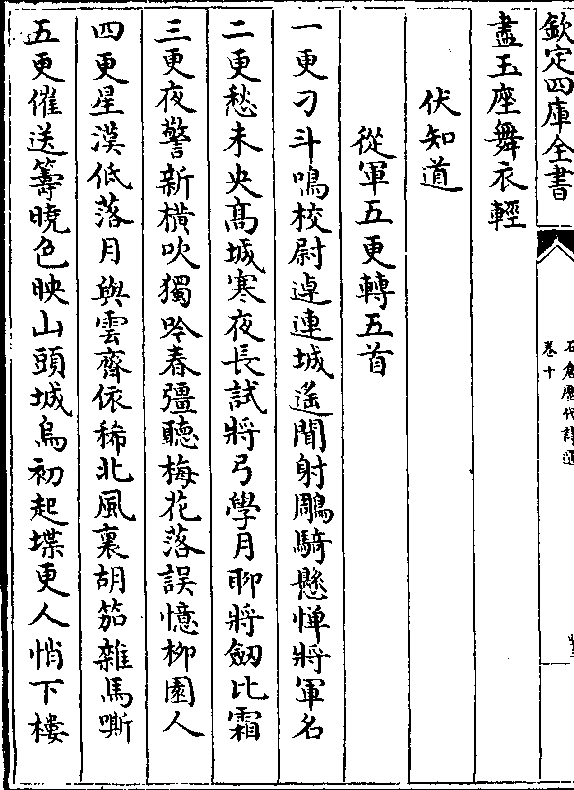 欽定四庫全書
石倉歷代詩選
卷十
盡玉座舞衣輕
伏知道
從軍五更轉五首
一更刁斗鳴校尉逴連城遙聞射鵰騎懸憚將軍名
二更愁未央髙城寒夜長試將弓學月聊將劔比霜
三更夜警新橫吹獨吟春彊聽梅花落誤憶柳園人
四更星漢低落月與雲齊依稀北風裏胡笳雜馬嘶
五更催送籌曉色映山頭城烏初起堞更人悄下樓